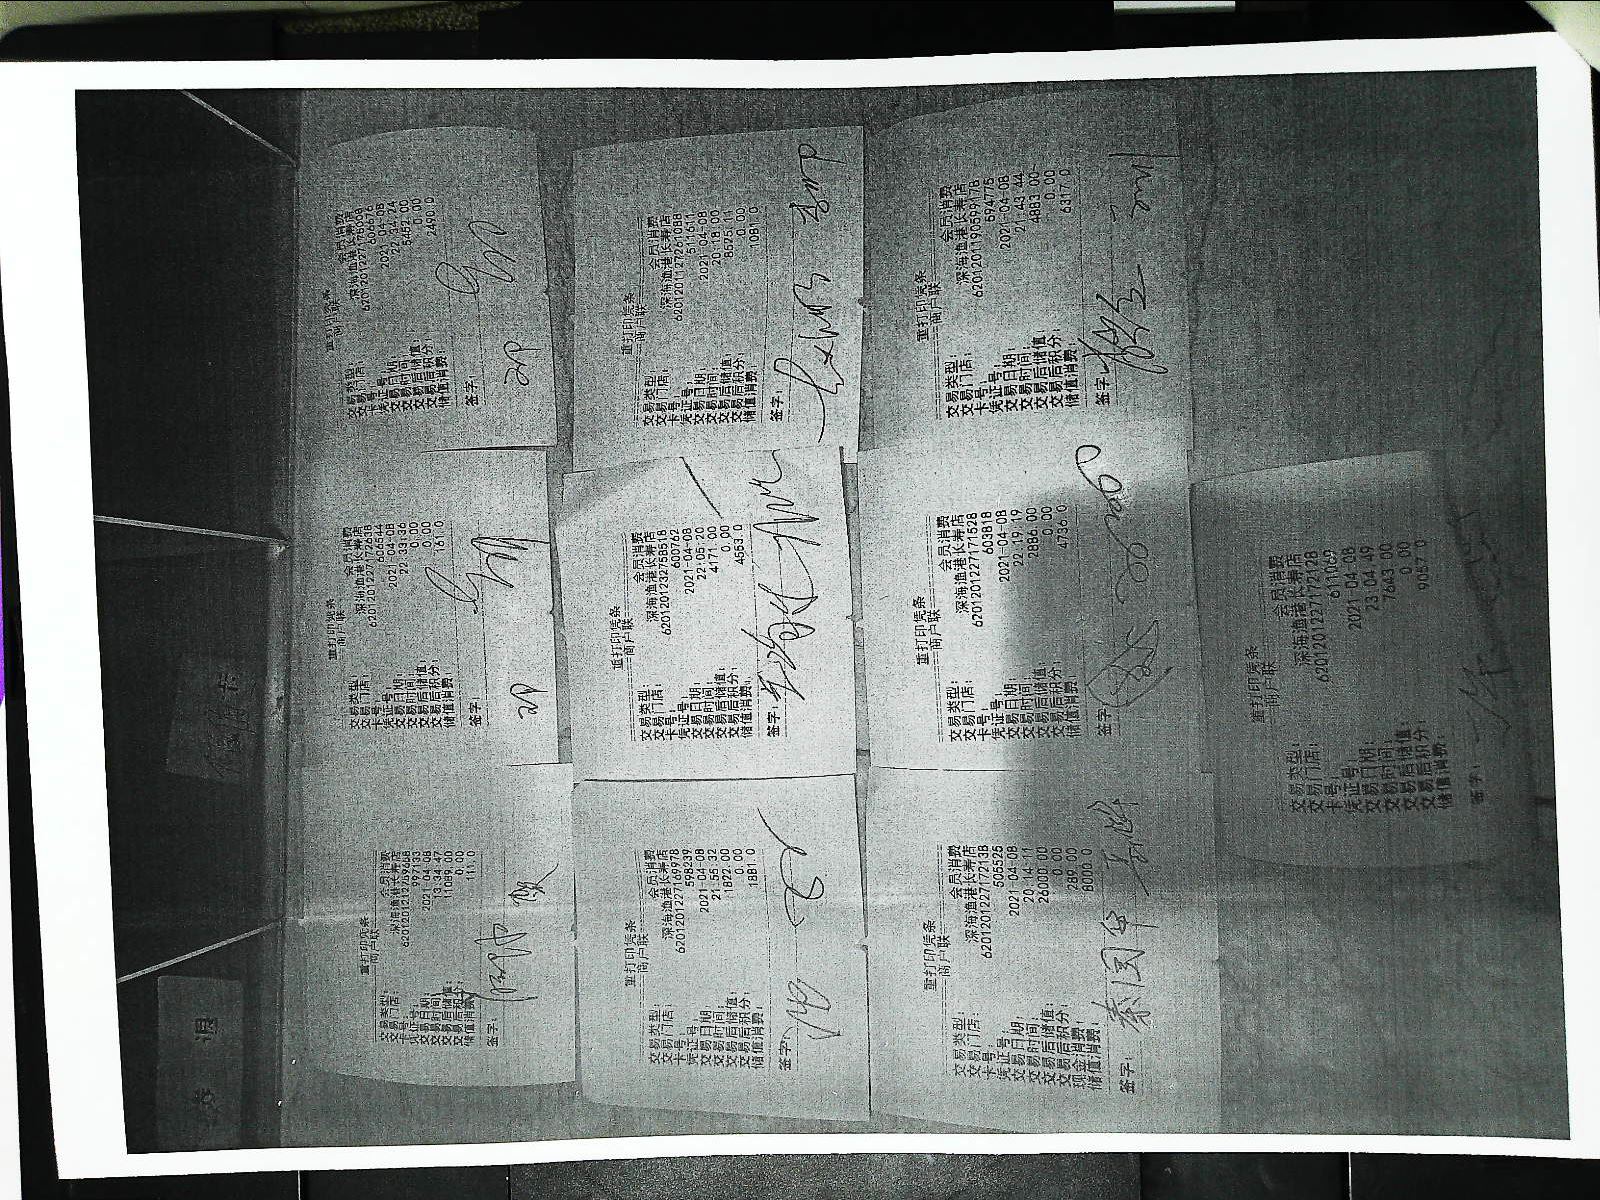 储值卡
重打印凭条
商户联
交易类型： 会员消费
交易门店： 深海渔港长寿店
卡号：
凭证号： 997133
交易日期： 2021-04-08
交易时间： 13:34:47
交易后储值： 11089.00
交易后积分： 0.00
储值消费： 111.0
签字：
重打印凭条
商户联
交易类型： 会员消费
交易门店： 深海渔港长寿店
卡号： 6201201227172238
凭证号： 606544
交易日期： 2021-04-08
交易时间： 22:33:36
交易后储值： 0.00
交易后积分： 0.00
储值消费： 151.0
签字：
重打印凭条
商户联
交易类型： 会员消费
交易门店： 深海渔港长寿店
卡号：
凭证号： 606676
交易日期： 2021-04-08
交易时间： 22:34:24
交易后储值： 5452.00
交易后积分： 0.00
储值消费： 2490.0
签字：
重打印凭条
商户联
交易类型： 会员消费
交易门店： 深海渔港长寿店
卡号： 6201201227169978
凭证号： 598239
交易日期： 2021-04-08
交易时间： 21:55:32
交易后储值： 1822.00
交易后积分： 0.00
储值消费： 1881.0
签字：
重打印凭条
商户联
交易类型： 会员消费
交易门店： 深海渔港长寿店
卡号： 6201201232758518
凭证号： 600762
交易日期： 2021-04-08
交易时间： 22:05:20
交易后储值： 4171.00
交易后积分： 0.00
储值消费： 4553.0
签字：
重打印凭条
商户联
交易类型： 会员消费
交易门店： 深海渔港长寿店
卡号： 6201201127261088
凭证号： 511611
交易日期： 2021-04-08
交易时间： 20:18:00
交易后储值： 8525.11
交易后积分： 0.00
储值消费： 1081.0
签字：
重打印凭条
商户联
交易类型： 会员消费
交易门店： 深海渔港长寿店
卡号： 6201201227172138
凭证号： 505525
交易日期： 2021-04-08
交易时间： 20:14:11
交易后储值： 26000.00
交易后积分： 0.00
现金消费： 289.00
储值消费： 8000.0
签字： 秦国华
重打印凭条
商户联
交易类型： 会员消费
交易门店： 深海渔港长寿店
卡号： 6201201227171528
凭证号： 603818
交易日期： 2021-04-08
交易时间： 22:19:19
交易后储值： 2886.00
交易后积分： 0.00
储值消费： 4736.0
签字：
重打印凭条
商户联
交易类型： 会员消费
交易门店： 深海渔港长寿店
卡号： 6201201190599178
凭证号： 594776
交易日期： 2021-04-08
交易时间： 21:43:44
交易后储值： 4883.00
交易后积分： 0.00
储值消费： 6317.0
签字：
重打印凭条
商户联
交易类型： 会员消费
交易门店： 深海渔港长寿店
卡号： 6201201227172128
凭证号： 611069
交易日期： 2021-04-08
交易时间： 23:04:49
交易后储值： 7643.00
交易后积分： 0.00
储值消费： 9057.0
签字：